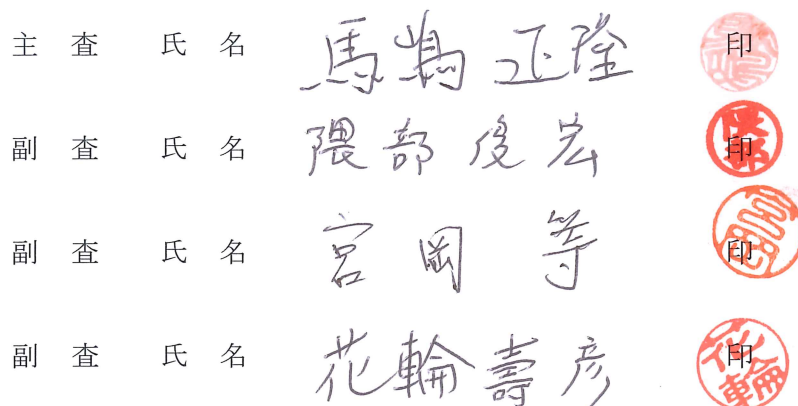 主 査 氏 名 馬嶋 正隆 印
副 査 氏 名 隈部 俊宏 印
副 査 氏 名 宮岡 等 印
副 査 氏 名 花輪 壽彦 印